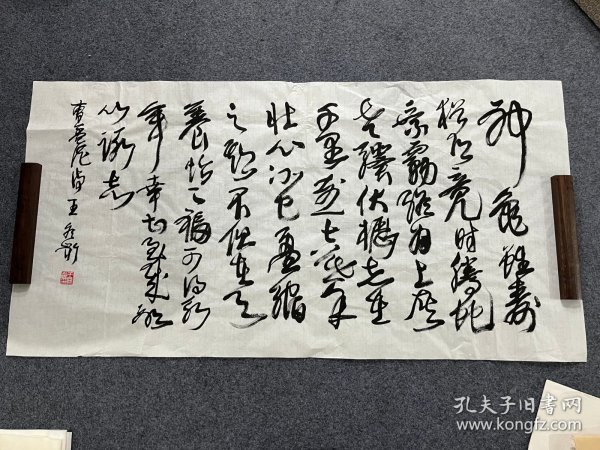 神龜雖壽
猶有竟時騰蛇
乘霧終為土灰
老驥伏櫪志在
千里烈士暮年
壯心不已盈縮
之期不但在天
養怡之福可得永
年幸甚至哉歌
以詠志
曹孟德詩王
孔夫子旧书网
www.kongfz.com